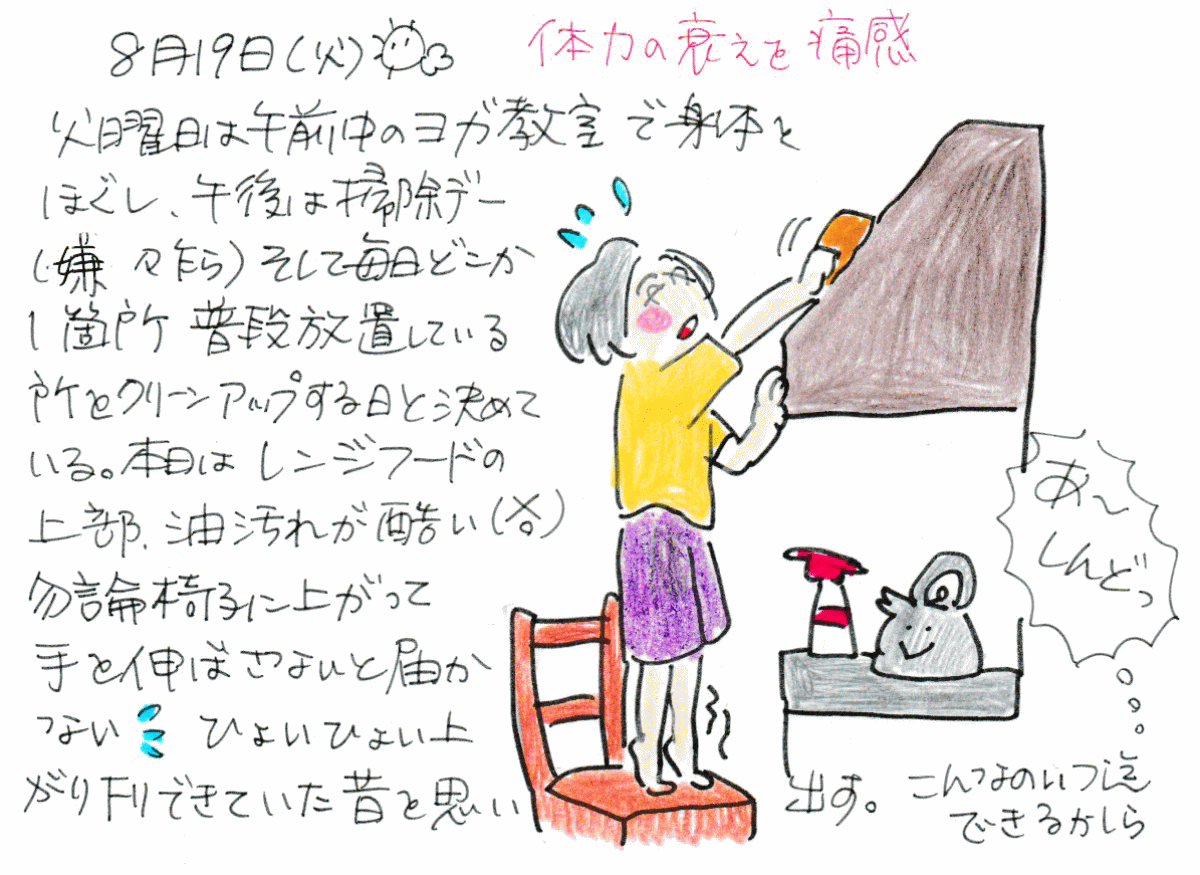 8月19日(火)
体力の衰えを痛感
火曜日は午前中のヨガ教室で身体を
ほぐし、午後は掃除デー
(嫌々乍ら)そして毎日どこか
1箇所 普段放置している
所をクリーンアップする日と決めて
いる。本日はレンジフードの
上部、油汚れが酷い
勿論椅子に上がって
手を伸ばさないと届か
ない ひょいひょい上
がり下りできていた昔を思い
出す。
あ〜
しんどっ
こんなのいつ迄
できるかしら